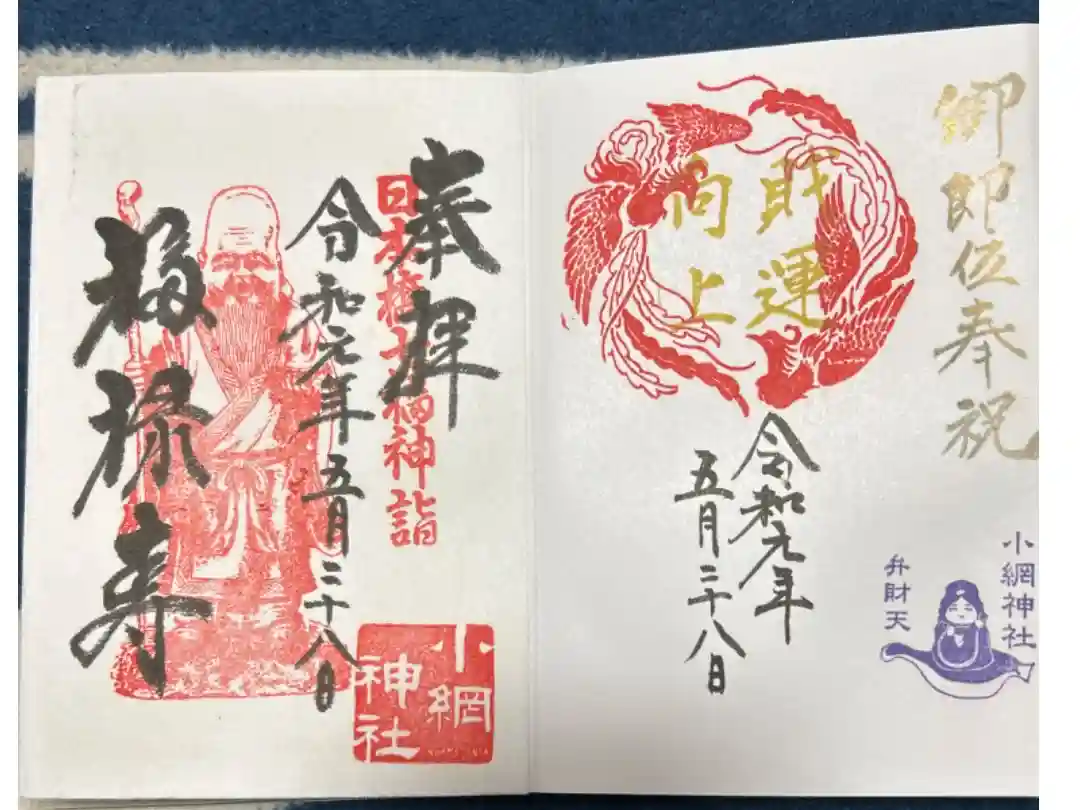 御即位奉祝
財運
向上
令和元年
五月二十八日
小網神社
弁財天
奉拝
日本橋七福神詣
令和元年五月二十八日
福禄寿
小網
神社